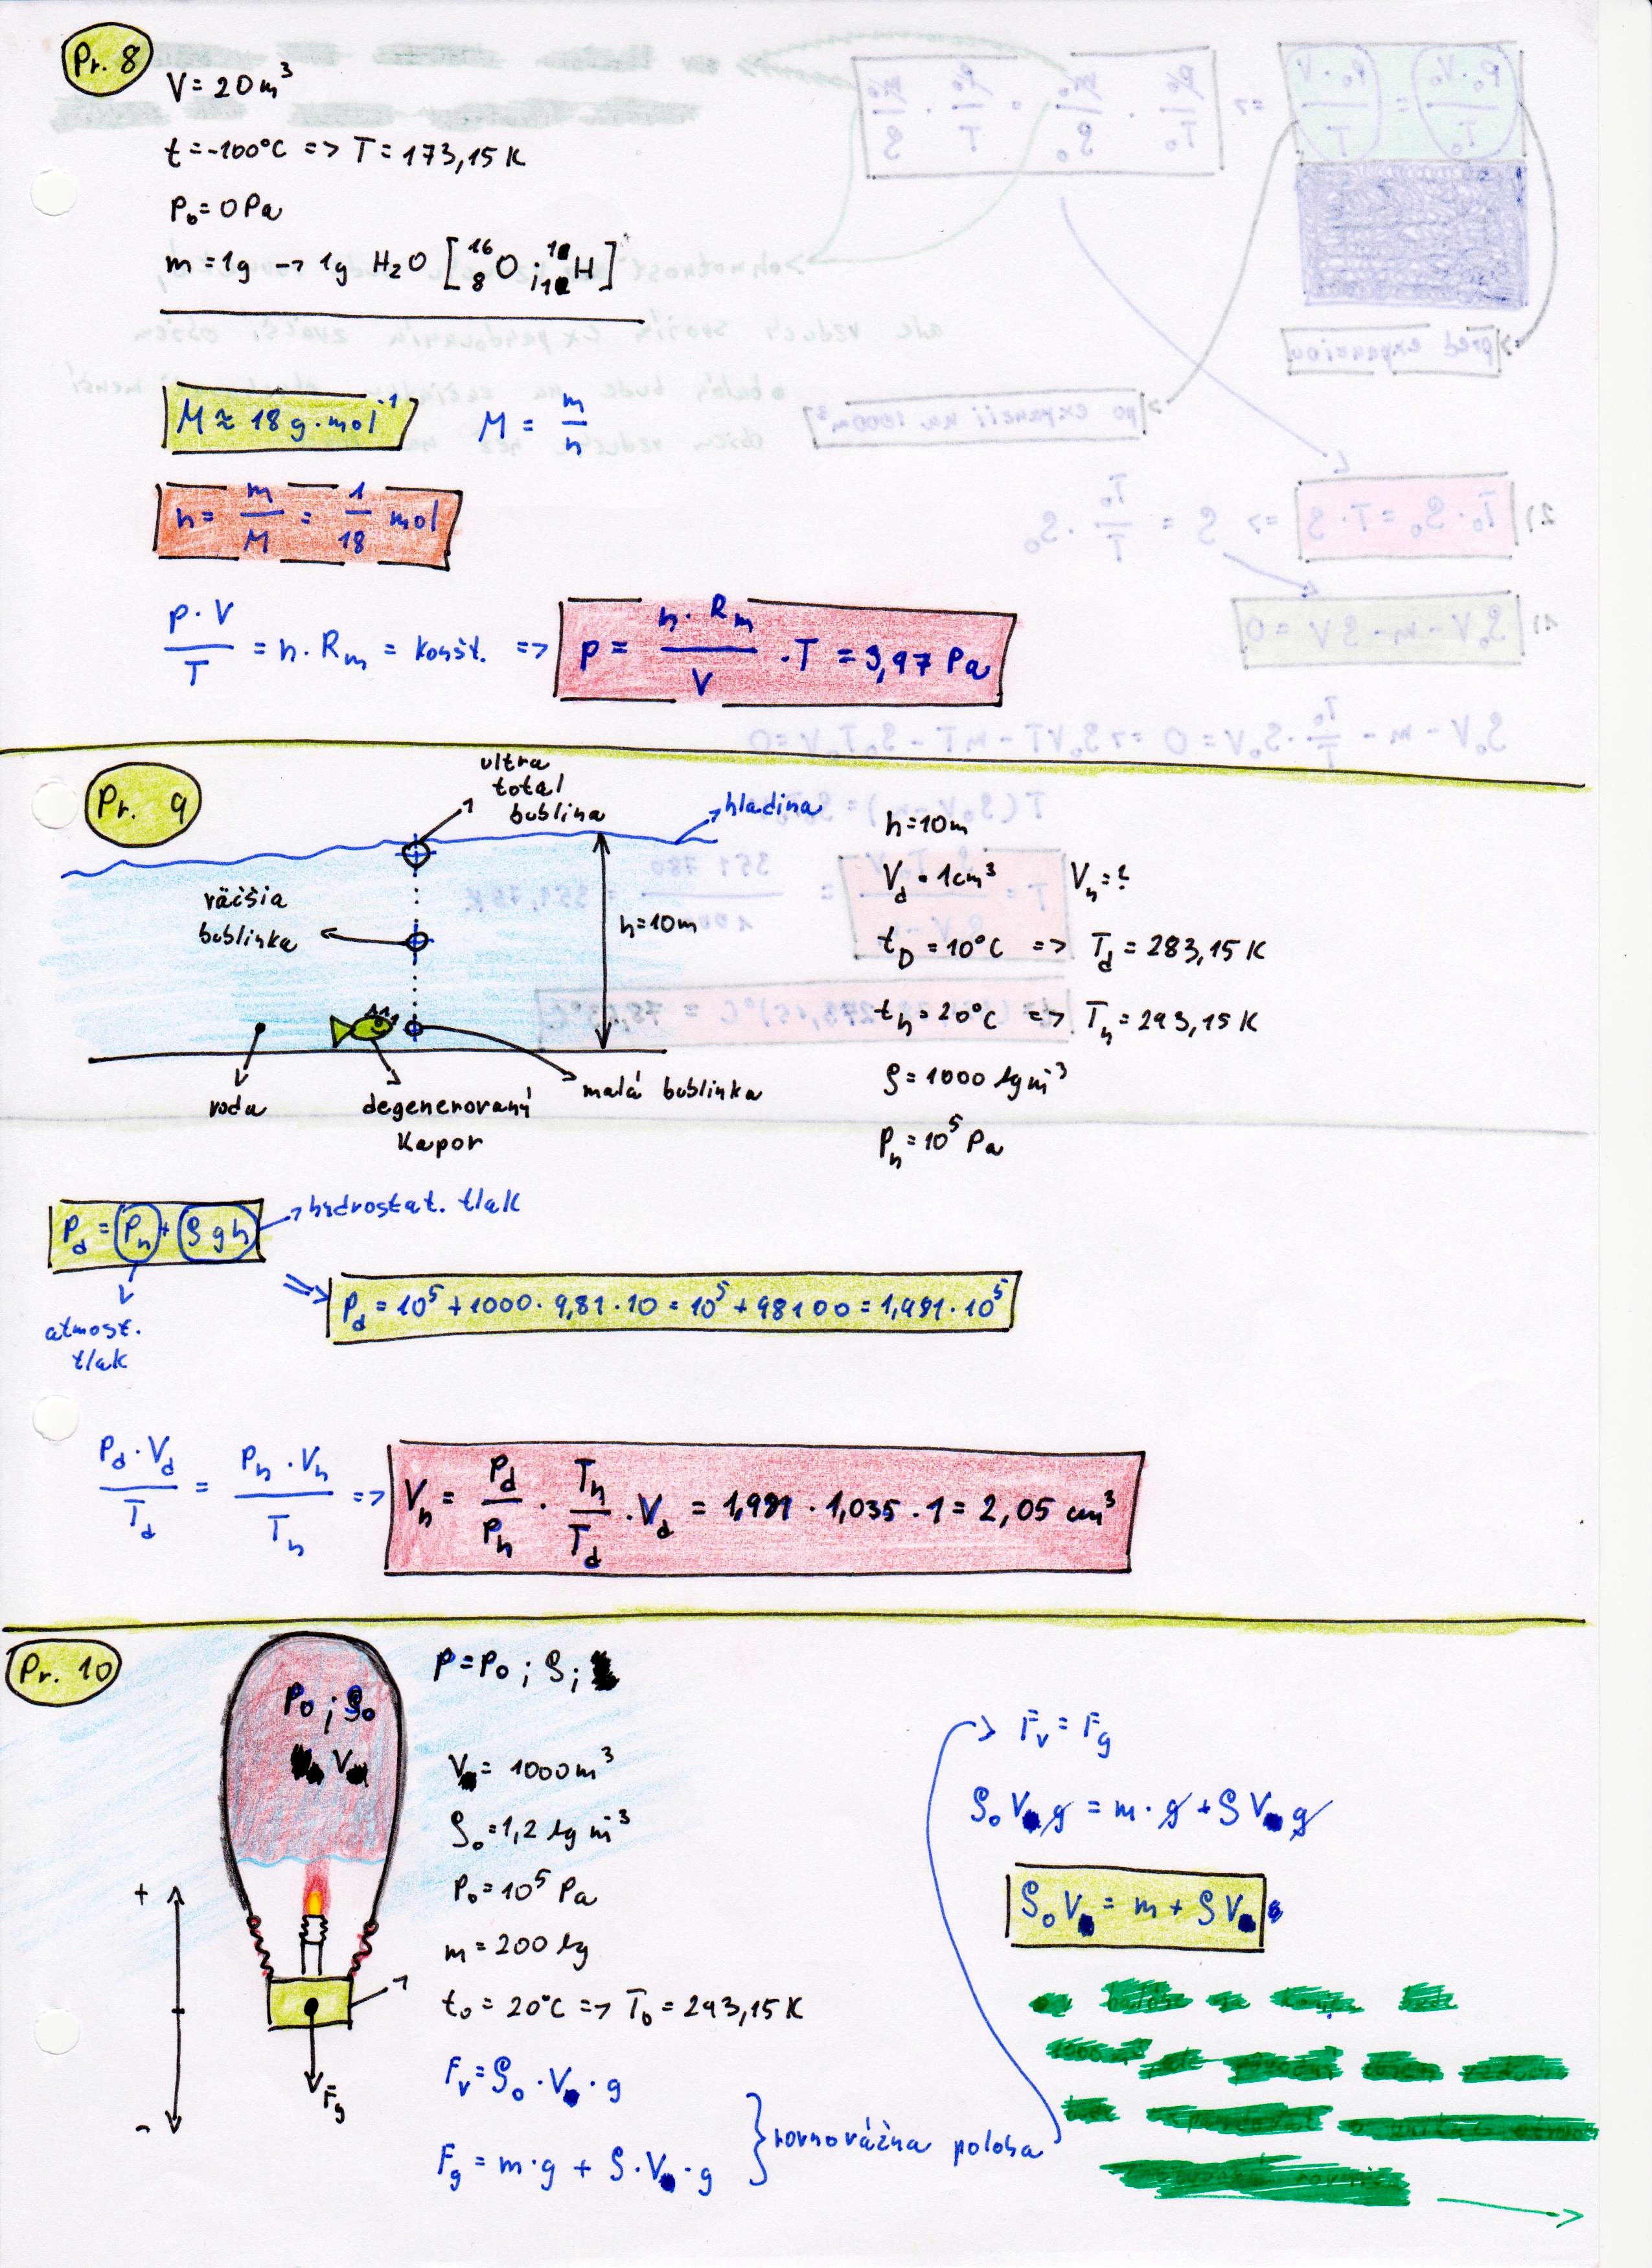 Pr. 8
V = 20 m³
t = -100°C => T = 173,15 K
P₀ = 0 Pa
m = 1g -> 1g H₂O [¹⁶₈O ; ¹₁H]
M ≈ 18 g·mol⁻¹
M = m/n
n = m/M = 1/18 mol
p·V/T = n·Rₘ = konšt. => p = n·Rₘ/V · T = 3,97 Pa
Pr. 9
ultra
total
bublina
hladina
väčšia
bublinka
h=10m
voda
degenerovaný
kapor
malá bublinka
h=10m
V_d = 1cm³ V_h = ?
t_D = 10°C => T_d = 283,15 K
t_h = 20°C => T_h = 293,15 K
ρ = 1000 kgm⁻³
P_h = 10⁵ Pa
P_d = P_h + ρgh
hydrostat. tlak
atmosf.
tlak
=> P_d = 10⁵ + 1000·9,81·10 = 10⁵ + 98100 = 1,981·10⁵
P_d·V_d/T_d = P_h·V_h/T_h => V_h = P_d/P_h · T_h/T_d · V_d = 1,981 · 1,035 · 1 = 2,05 cm³
Pr. 10
P₀ ; ρ₀
V
+
-
F_g
1
P = P₀ ; ρ ;
V = 1000 m³
ρ₀ = 1,2 kg m⁻³
P₀ = 10⁵ Pa
m = 200 kg
t₀ = 20°C => T₀ = 293,15 K
F_v = ρ₀·V·g
F_g = m·g + ρ·V·g
} rovnovážna poloha
F_v = F_g
ρ₀Vg = m·g + ρVg
ρ₀V = m + ρV